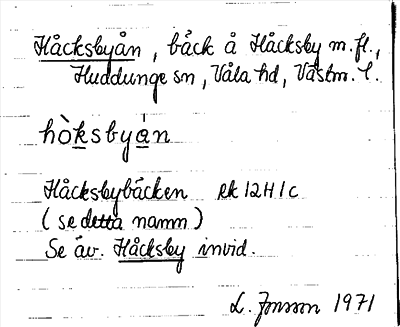 Håcksbyån, bäck å Håcksby m.fl.,
Huddunge sn, Våla hd, Västm. l.
hò̀ksbyán
Håcksbybäcken ek 12H1c
(se detta namn)
Se äv. Håcksby invid.
L. Jonsson 1971